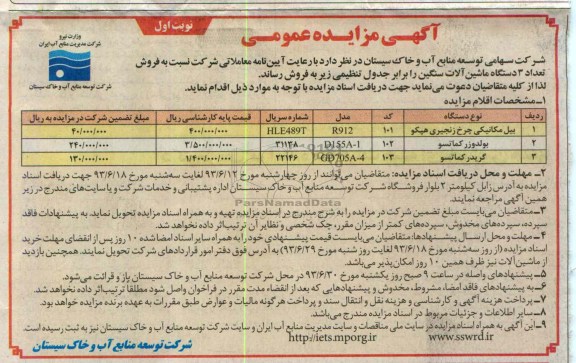 نوبت اول
آگهی مزایده عمومی
وزارت نیرو
شرکت مدیریت منابع آب ایران
شرکت توسعه منابع آب و خاک سیستان
شرکت سهامی توسعه منابع آب و خاک سیستان در نظر دارد با رعایت آیین‌نامه معاملاتی شرکت نسبت به فروش
تعداد ۳ دستگاه ماشین آلات سنگین را برابر جدول تنظیمی زیر به فروش رساند.
لذا از کلیه متقاضیان دعوت می‌نماید جهت دریافت اسناد مزایده با توجه به موارد ذیل اقدام نمایند.
۱-مشخصات اقلام مزایده
ردیف نوع دستگاه کد مدل شماره سریال قیمت پایه کارشناسی ریال مبلغ تضمین شرکت در مزایده به ریال
۱ بیل مکانیکی چرخ زنجیری هپکو ۱۰۱ R912 HLE489T ۴۰۰/۰۰۰/۰۰۰ ۴۰/۰۰۰/۰۰۰
۲ بولدوزر کماتسو ۱۰۲ D155A-1 ۳۱۱۳۸ ۳/۵۰۰/۰۰۰/۰۰۰ ۲۴۰/۰۰۰/۰۰۰
۳ گریدر کماتسو ۱۰۳ GD705A-4 ۲۲۱۴۶ ۱/۴۰۰/۰۰۰/۰۰۰ ۱۶۰/۰۰۰/۰۰۰
۲- مهلت و محل دریافت اسناد مزایده: متقاضیان می‌توانند از روز چهارشنبه مورخ ۹۳/۶/۱۲ لغایت سه‌شنبه مورخ ۹۳/۶/۱۸ جهت دریافت اسناد
مزایده به آدرس زابل کیلومتر ۲ بلوار فرودگاه شرکت توسعه منابع آب و خاک سیستان اداره پشتیبانی و خدمات شرکت و یا سایت‌های مندرج در زیر
همین آگهی مراجعه نمایند.
ParsNamadData
۳-متقاضیان می‌بایست مبلغ تضمین شرکت در مزایده را به شرح مندرج در اسناد مزایده تهیه و به همراه اسناد مزایده تحویل نماید. به پیشنهادات فاقد
سپرده، سپرده‌های مخدوش، سپرده‌های کمتر از میزان مقرر، چک شخصی و نظایر آن ترتیب اثر داده نخواهد شد.
۴- مهلت و محل ارسال پیشنهادها: متقاضیان می‌بایست قیمت پیشنهادی خود را به همراه سایر اسناد امضا شده ۱۰ روز پس از انقضای مهلت خرید
اسناد مزایده (از روز سه‌شنبه مورخ ۹۳/۶/۱۸ لغایت روز شنبه مورخ ۹۳/۶/۲۹) به آدرس فوق دفتر امور قراردادهای شرکت تحویل نمایند. همچنین بازدید
از ماشین آلات نیز ظرف همین ۱۰ روز امکان پذیر می‌باشد.
۵-پیشنهادهای واصله در ساعت ۹ صبح روز یکشنبه مورخ ۹۳/۶/۳۰ در محل شرکت توسعه منابع آب و خاک سیستان باز و قرائت می‌شود.
۶-به پیشنهادهای فاقد امضا، مشروط، مخدوش و پیشنهادهایی که بعد از انقضاء مدت مقرر در فراخوان واصل شود مطلقا ترتیب اثر داده نخواهد شد.
۷-پرداخت هزینه آگهی و کارشناسی و هزینه نقل و انتقال سند و پرداخت هرگونه مالیات و عوارض طبق مقررات به عهده برنده مزایده خواهد بود.
۸-سایر اطلاعات و جزئیات مربوط در اسناد مزایده مندرج می‌باشد.
۹-این آگهی به همراه اسناد مزایده در سایت ملی مناقصات و سایت مدیریت منابع آب ایران و سایت شرکت توسعه منابع آب و خاک سیستان نیز به ثبت رسیده است.
http://iets.mporg.ir www.sswrd.ir
شرکت توسعه منابع آب و خاک سیستان